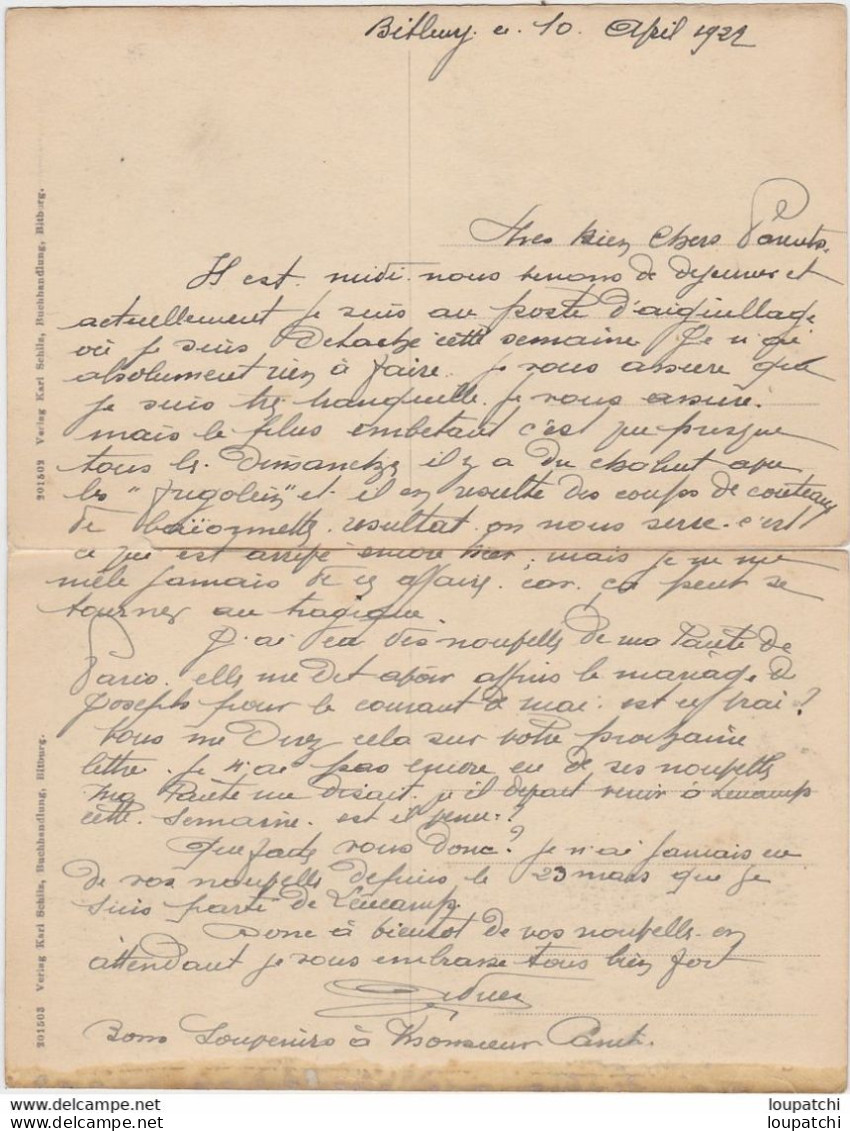 Bitburg. a. 10. April 1922
Tres bien Chers Parents.
Il est. midi. nous venons de dejeuner et
actuellement je suis au poste d'aiguillage
où je suis Detaché cette semaine. Je n'ai
absolument rien à faire. je vous assure que
je suis trs tranquille. je vous assure.
mais le plus embetant c'est que presque
tous ls. Dimanches il y a du chahut avec
les " " et. il en resulte des coups de couteaux
de baïonnetts. resultat. on nous serre. c'est
ce qui est arrivé encore hier, mais je ne me
mele jamais de cs affaires. car. ça peut se
tourner au tragique.
J'ai eu des nouvells de ma Tante de
Paris. elle me dit avoir appris le mariage de
Joseph pour le courant de mai. est ce vrai?
Vous me Direz cela sur votre prochaine
lettre. Je n'ai pas encore eu de ses nouvells
Ma Tante me disait. qu'il devait venir à Leucamp
cette. semaine. est il venu?
Que faites vous donc? je n'ai jamais eu
de vos nouvells depuis le 23 mars que je
suis parti de Leucamp.
Donc à bientot de vos nouvells. en
attendant je vous embrasse tous bien fort
Bons Souvenirs à Monsieur
201502 Verlag Karl Schilz, Buchhandlung, Bitburg.
201503 Verlag Karl Schilz, Buchhandlung, Bitburg.
loupatchi
loupatchi
loupatchi
loupatchi